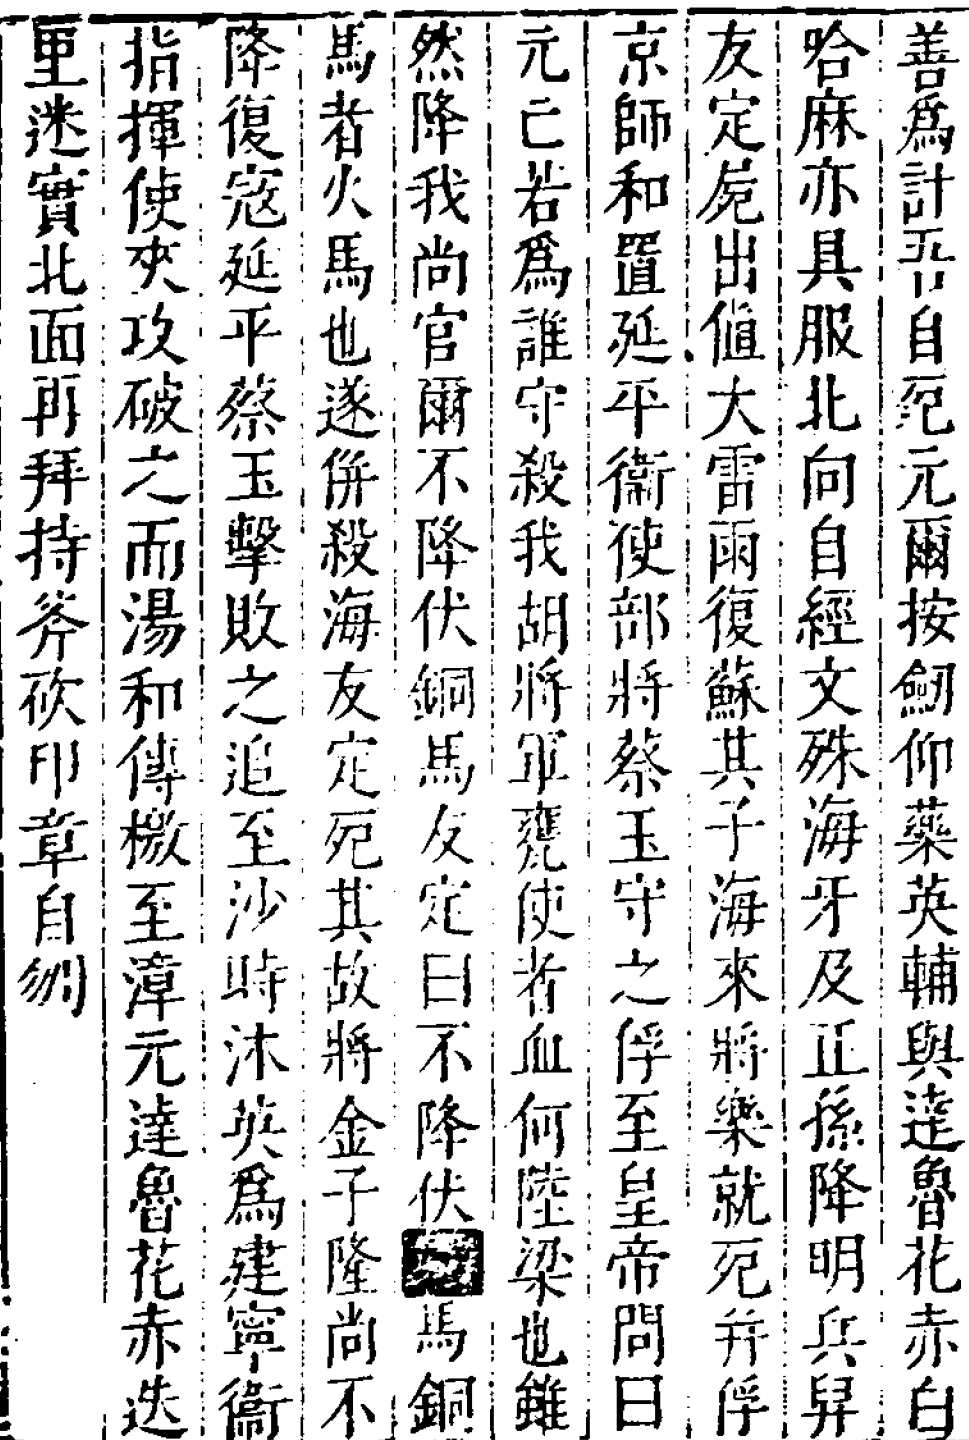 善爲計吾自死元爾按劒仰藥英輔與達魯花赤白
哈麻亦具服北向自經文殊海牙及正孫降明兵舁
友定屍出値大雷雨復蘇其子海來將樂就死并俘
京師和置延平衞使部將蔡玉守之俘至皇帝問曰
元亡若爲誰守殺我胡將軍甕使者血何陸梁也雖
然降我尚官爾不降伏銅馬友定曰不降伏馬銅
馬者火馬也遂併殺海友定死其故將金子隆尚不
降復寇延平蔡玉擊敗之追至沙時沐英爲建寧衞
指揮使夾攻破之而湯和傳檄至漳元達魯花赤迭
里迷實北面再拜持斧砍印章自刎